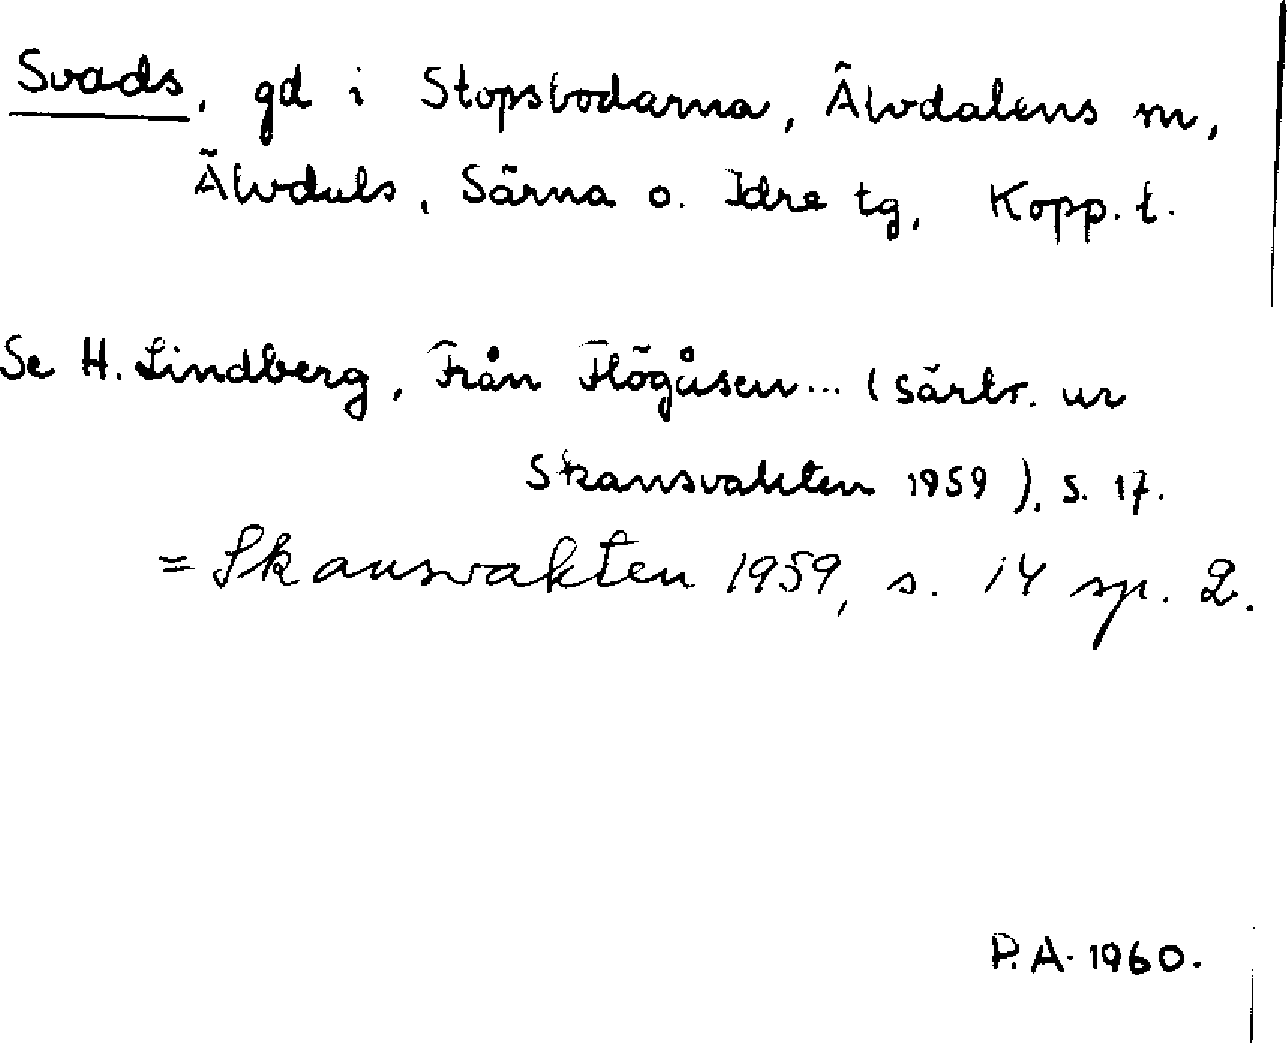 Svads, gd i Stopsbodarna, Älvdalens m,
Älvdals, Särna o. Idre tg, Kopp. l.
Se H. Lindberg, Från Flögåsen... (särtr. ur
Skansvakten 1959), s. 17.
= Skansvakten 1959, s. 14 sp. 2.
P.A. 1960.